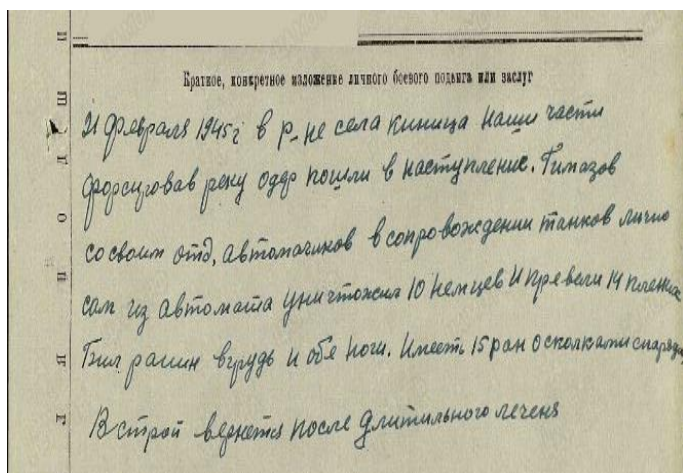 Краткое, конкретное изложение личного боевого подвига или заслуг
21 Февраля 1945г в р-не села киница наши части
форсуровав реку одер пошли в наступление. Гимазов
со своим отд, автоматчиков в сопровождении танков лично
сам из автомата уничтожил 10 немцев И превели 14 пленных
Был ранин вгрудь и обе ноги. Имеет 15 ран осколками снаряда,
В строй вернетя после длитильного леченя